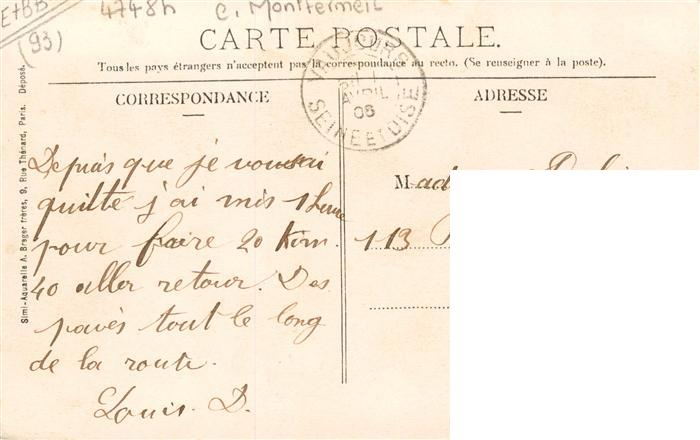 E+BB
4748h
C. Montfermeil
(93)
CARTE POSTALE.
Tous les pays étrangers n'acceptent pas la correspondance au recto. (Se renseigner à la poste).
CORRESPONDANCE
ADRESSE
VAUJOURS
AVRIL
06
SEINE ET OISE
Simi-Aquarelle A. Breger frères, 9, Rue Thénard, Paris. Déposé.
Depuis que je vous ai
quitté j'ai mis 1 heure
pour faire 20 Kom.
40 aller retour. Des
pavés tout le long
de la route.
Louis. D.
Mad
113